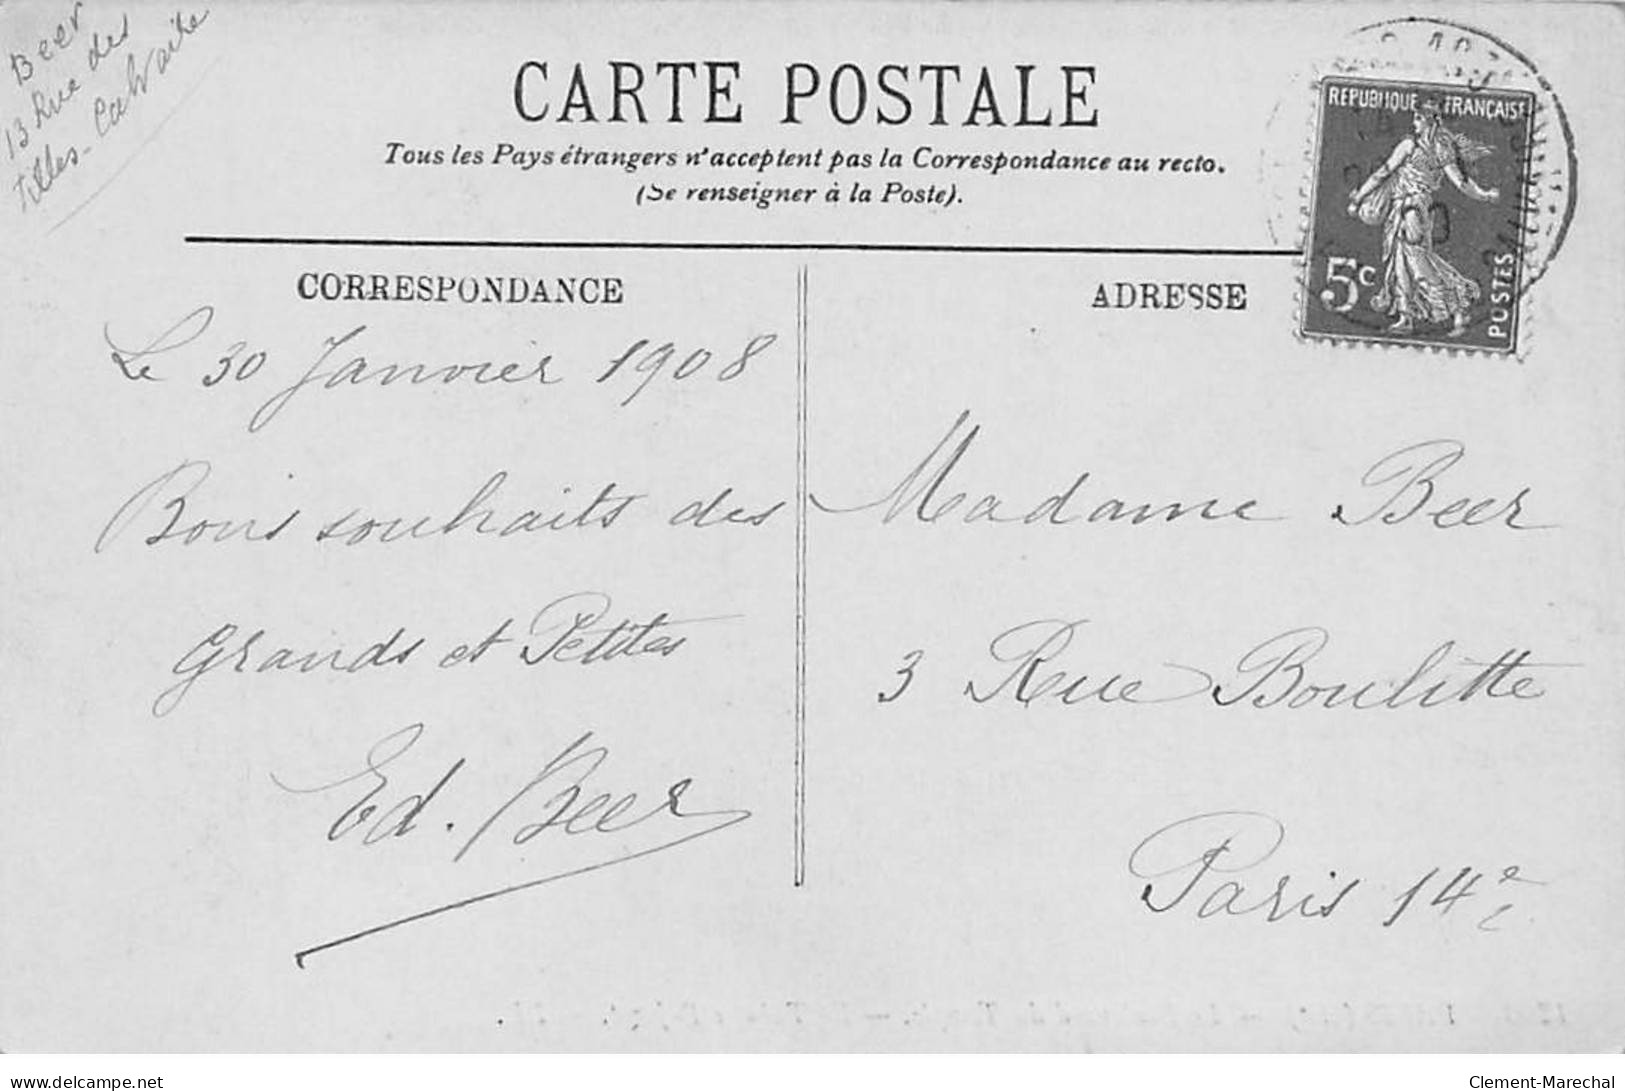 Beer
13 Rue des
Filles-Calvaire
CARTE POSTALE
Tous les Pays étrangers n'acceptent pas la Correspondance au recto.
(Se renseigner à la Poste).
REPUBLIQUE FRANÇAISE
5c
POSTES
CORRESPONDANCE
Le 30 Janvier 1908
Bons souhaits des
Grands et Petites
Ed. Beer
ADRESSE
Madame Beer
3 Rue Boulitte
Paris 14e
delcampe.net
Clement-Marechal